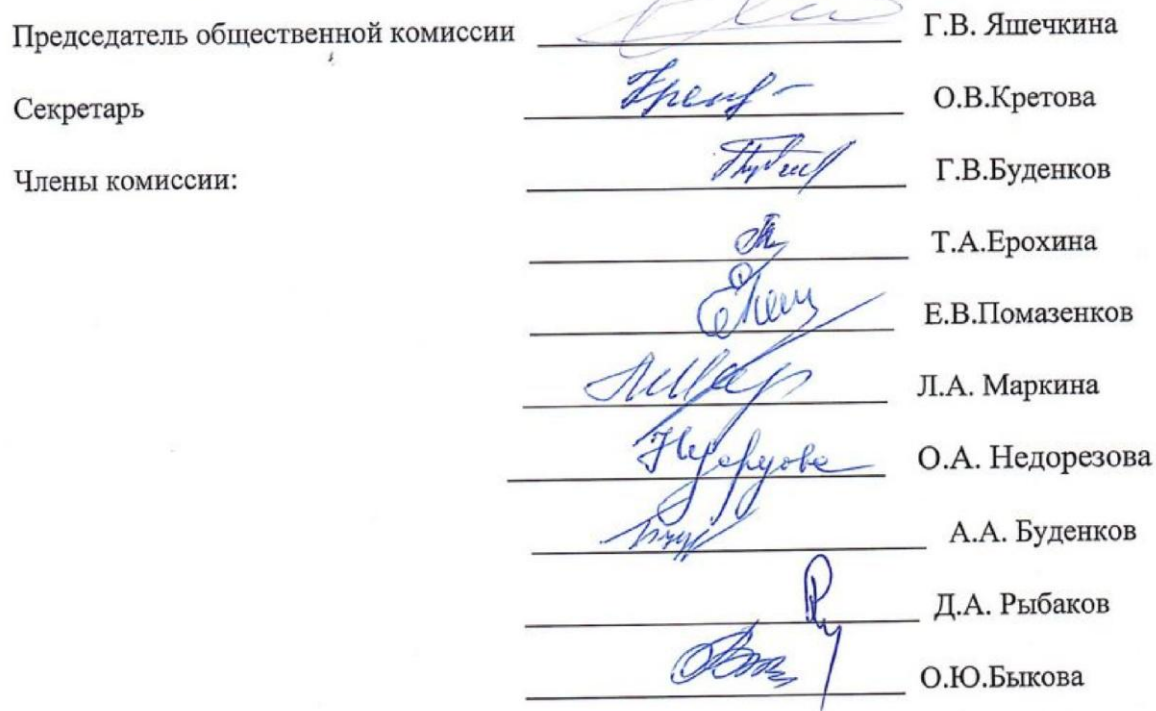 Председатель общественной комиссии Г.В. Яшечкина
Секретарь О.В.Кретова
Члены комиссии: Г.В.Буденков
Т.А.Ерохина
Е.В.Помазенков
Л.А. Маркина
О.А. Недорезова
А.А. Буденков
Д.А. Рыбаков
О.Ю.Быкова